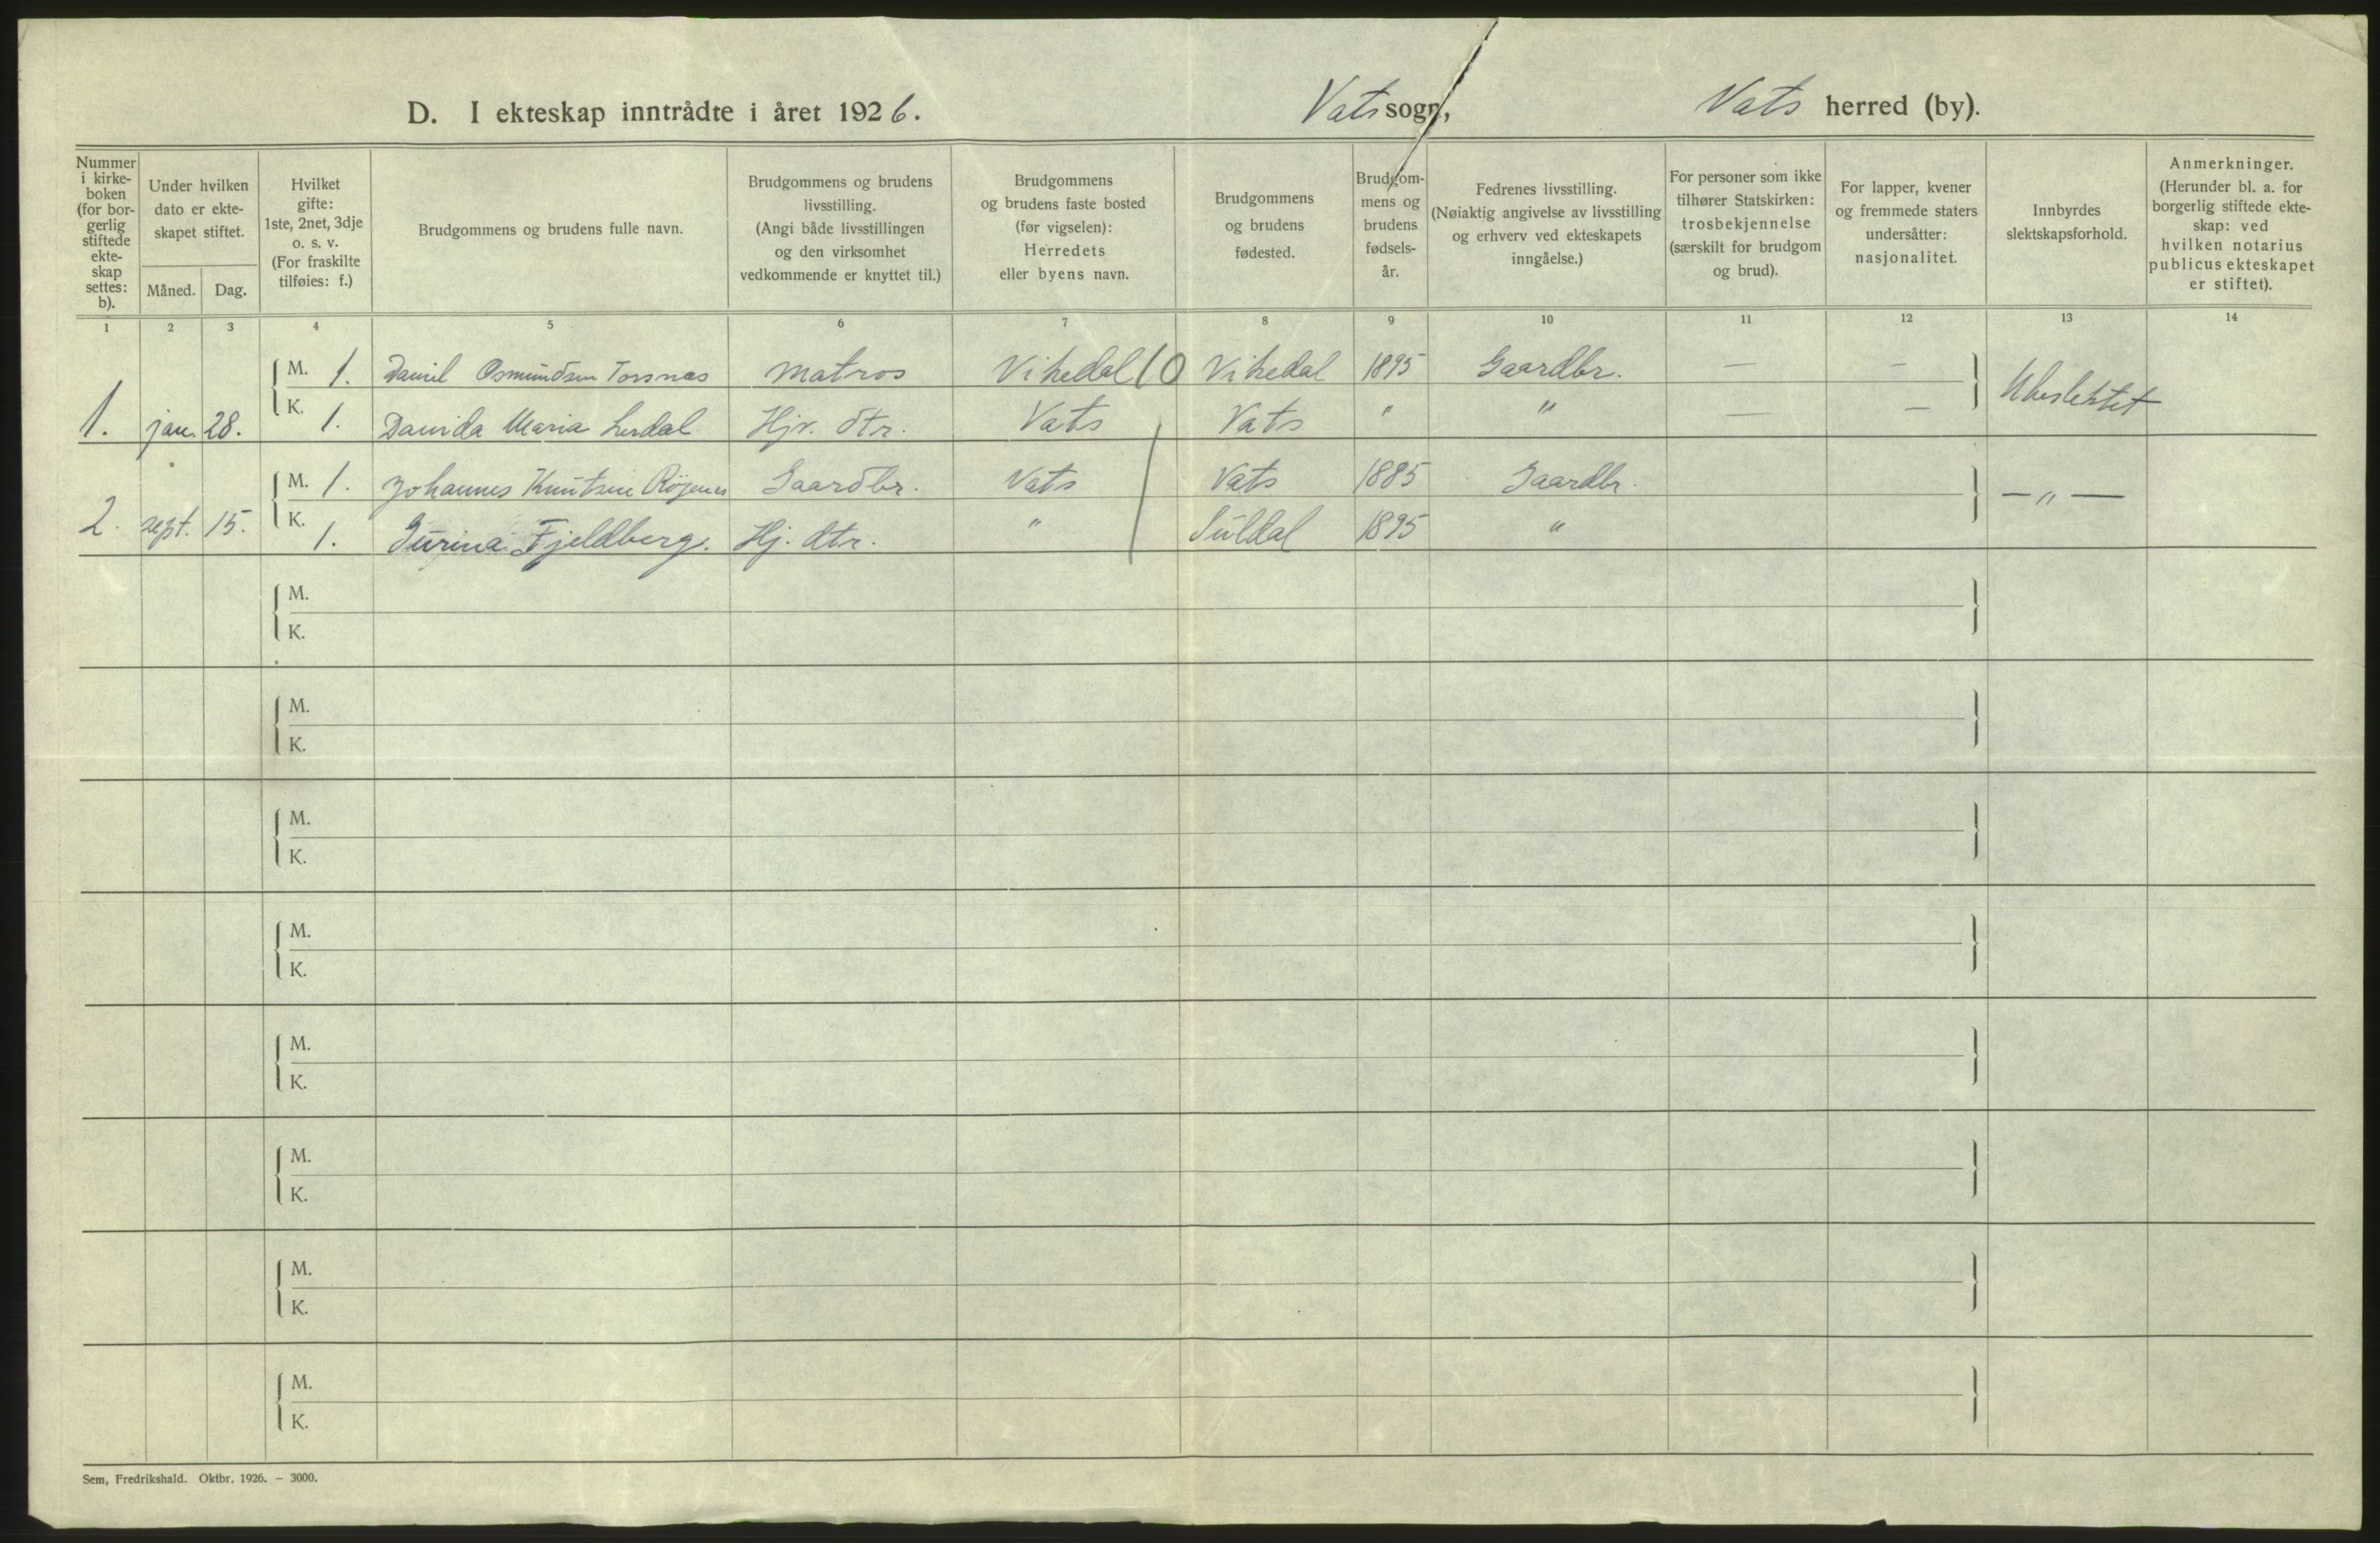 D. I ekteskap inntrådte i året 1926. Vats sogn, Vats herred (by).
Nummer
i kirke-
boken
(for bor-
gerlig
stiftede
ekte-
skap
settes:
b).
Under hvilken
dato er ekte-
skapet stiftet.
Måned. Dag.
Hvilket
gifte:
1ste, 2net, 3dje
o. s. v.
(For fraskilte
tilføies: f.)
Brudgommens og brudens fulle navn.
Brudgommens og brudens
livsstilling.
(Angi både livsstillingen
og den virksomhet
vedkommende er knyttet til.)
Brudgommens
og brudens faste bosted
(før vigselen):
Herredets
eller byens navn.
Brudgommens
og brudens
fødested.
Brudgom-
mens og
brudens
fødsels-
år.
Fedrenes livsstilling.
(Nøiaktig angivelse av livsstilling
og erhverv ved ekteskapets
inngåelse.)
For personer som ikke
tilhører Statskirken:
trosbekjennelse
(særskilt for brudgom
og brud).
For lapper, kvener
og fremmede staters
undersåtter:
nasjonalitet.
Innbyrdes
slektskapsforhold.
Anmerkninger.
(Herunder bl. a. for
borgerlig stiftede ekte-
skap: ved
hvilken notarius
publicus ekteskapet
er stiftet).
1 2 3 4 5 6 7 8 9 10 11 12 13 14
M. 1. Daniel Osmundsen Torsnæs Matros Vikedal 10 Vikedal 1895 Gaardbr. — —
1. jan. 28. K. 1. Davida Maria Lerdal Hjv. dtr. Vats Vats " " — — Ubeslektet
M. 1. Johannes Knutsen Gaardbr. Vats Vats 1885 Gaardbr. — " —
2. sept. 15. K. 1. Gurina Fjeldberg. Hj. dtr. " Suldal 1895 "
M.
K.
M.
K.
M.
K.
M.
K.
M.
K.
M.
K.
M.
K.
M.
K.
Sem, Fredrikshald. Oktbr. 1926. — 3000.